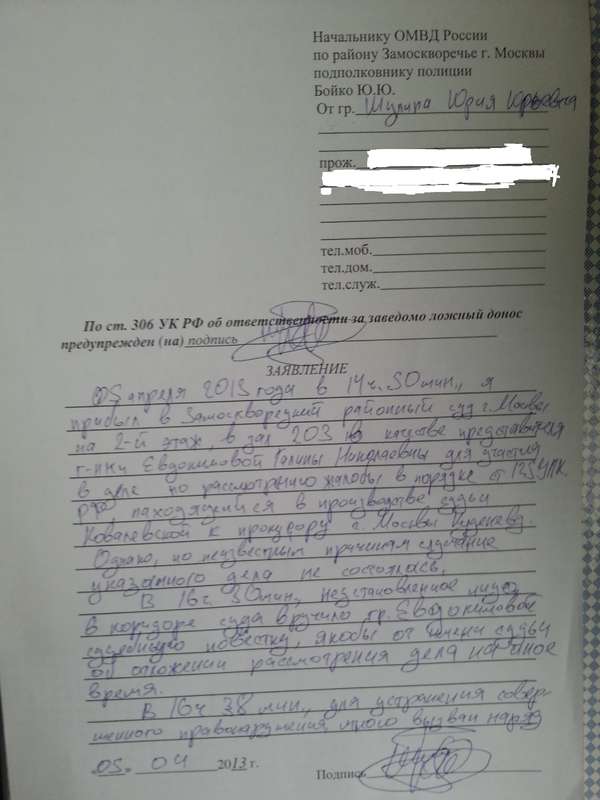 Начальнику ОМВД России
по району Замоскворечье г. Москвы
подполковнику полиции
Бойко Ю.Ю.
От гр. Шулипа Юрия Юрьевича
прож.
тел.моб.
тел.дом.
тел.служ.
По ст. 306 УК РФ об ответственности за заведомо ложный донос
предупрежден (на) подпись
ЗАЯВЛЕНИЕ
05 апреля 2013 года в 14 ч. 30 мин., я
прибыл в Замоскворецкий районный суд г. Москвы
на 2-й этаж в зал 203 в качестве представителя
г-нки Евдокимовой Галины Николаевны для участия
в деле по рассмотрению жалобы в порядке ст 125 УПК
РФ, находящийся в производстве судьи
Ковалевской к прокурору г. Москвы Куденееву.
Однако, по неизвестным причинам слушание
указанного дела не состоялась.
В 16 ч 30 мин, неустановленное лицо
в коридоре суда вручило гр. Евдокимовой
судебную повестку, якобы от имени судьи
об отложении рассмотрения дела на иное
время.
В 16 ч 38 мин., для устранения совер-
шенного правонарушения, мною вызван наряд
05. 04 2013 г.
Подпись